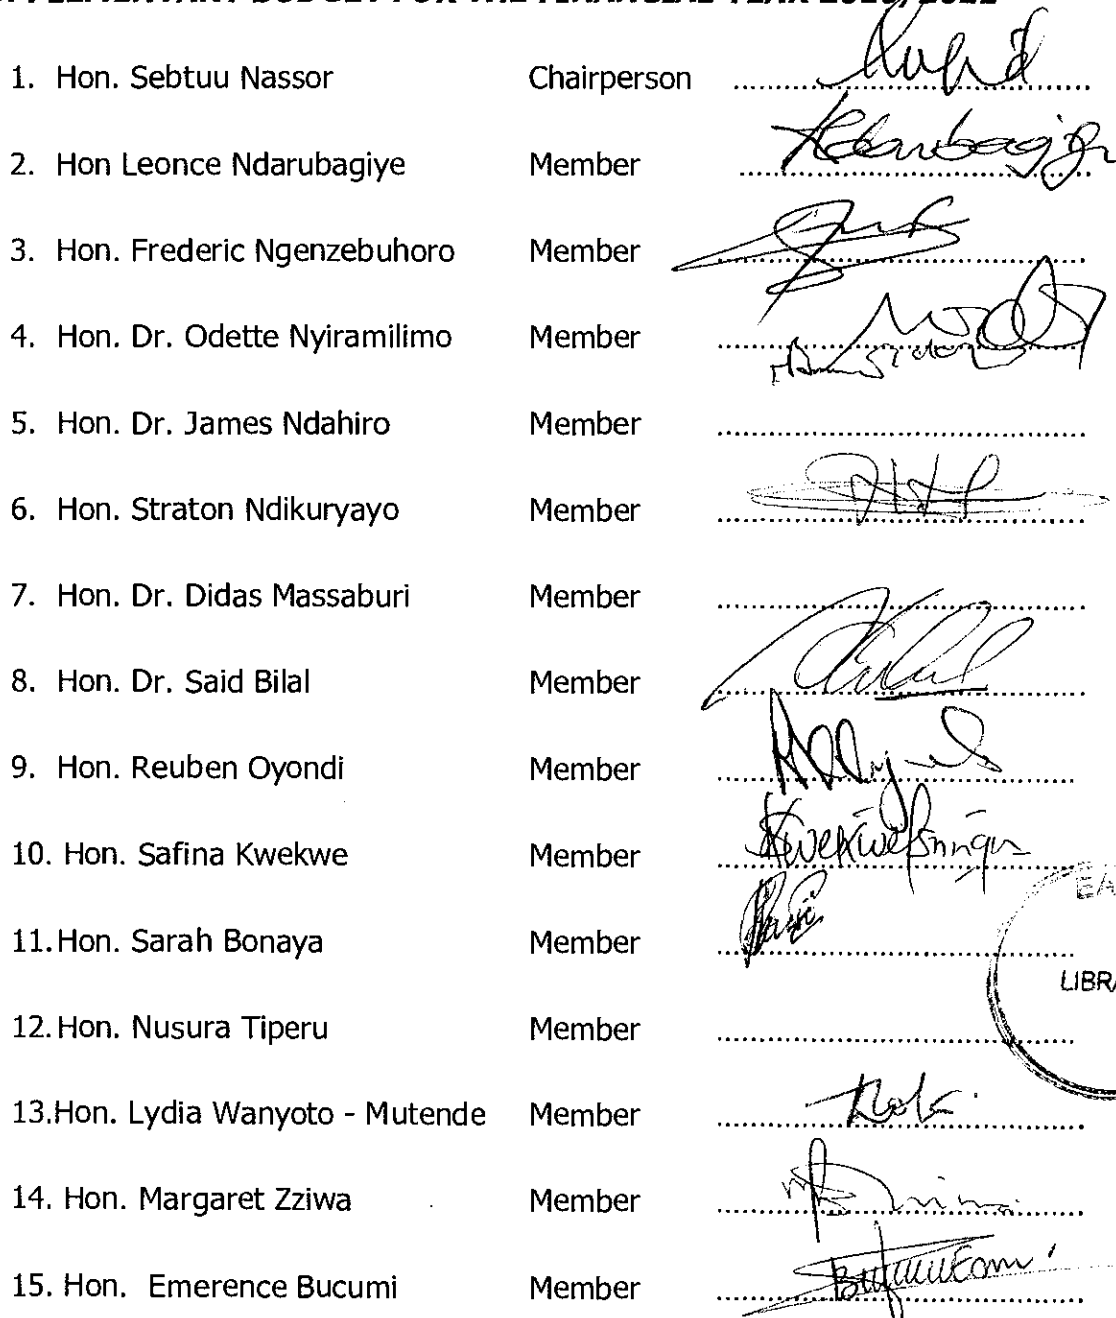 SUPPLEMENTARY BUDGET FOR THE FINANCIAL YEAR
1. Hon. Sebtuu Nassor Chairperson
2. Hon Leonce Ndarubagiye Member
3. Hon. Frederic Ngenzebuhoro Member
4. Hon. Dr. Odette Nyiramilimo Member
5. Hon. Dr. James Ndahiro Member
6. Hon. Straton Ndikuryayo Member
7. Hon. Dr. Didas Massaburi Member
8. Hon. Dr. Said Bilal Member
9. Hon. Reuben Oyondi Member
10. Hon. Safina Kwekwe Member
11. Hon. Sarah Bonaya Member
EA
LIBRA
12. Hon. Nusura Tiperu Member
13.Hon. Lydia Wanyoto - Mutende Member
14. Hon. Margaret Zziwa Member
15. Hon. Emerence Bucumi Member